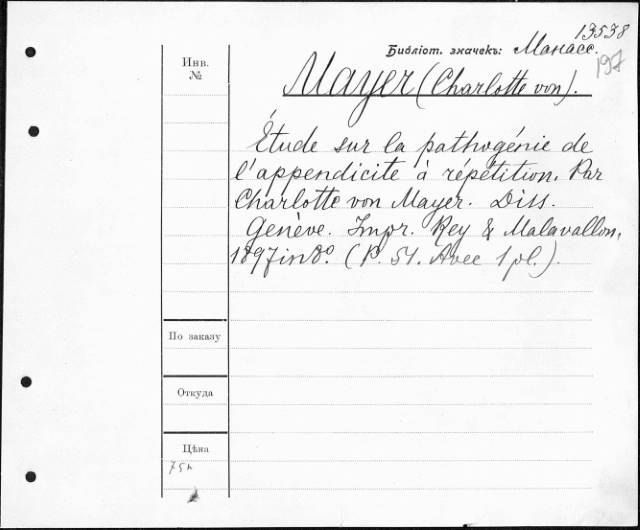 13538
Библіот. значекъ: Манасс.
197
Инв.
№
Mayer (Charlotte von).
Étude sur la pathogénie de
l'appendicite à répétition. Par
Charlotte von Mayer. Diss.
Genève. Impr. Rey & Malavallon,
1897 in 8º. (P. 54. Avec 1 pl.).
По заказу
Откуда
Цѣна